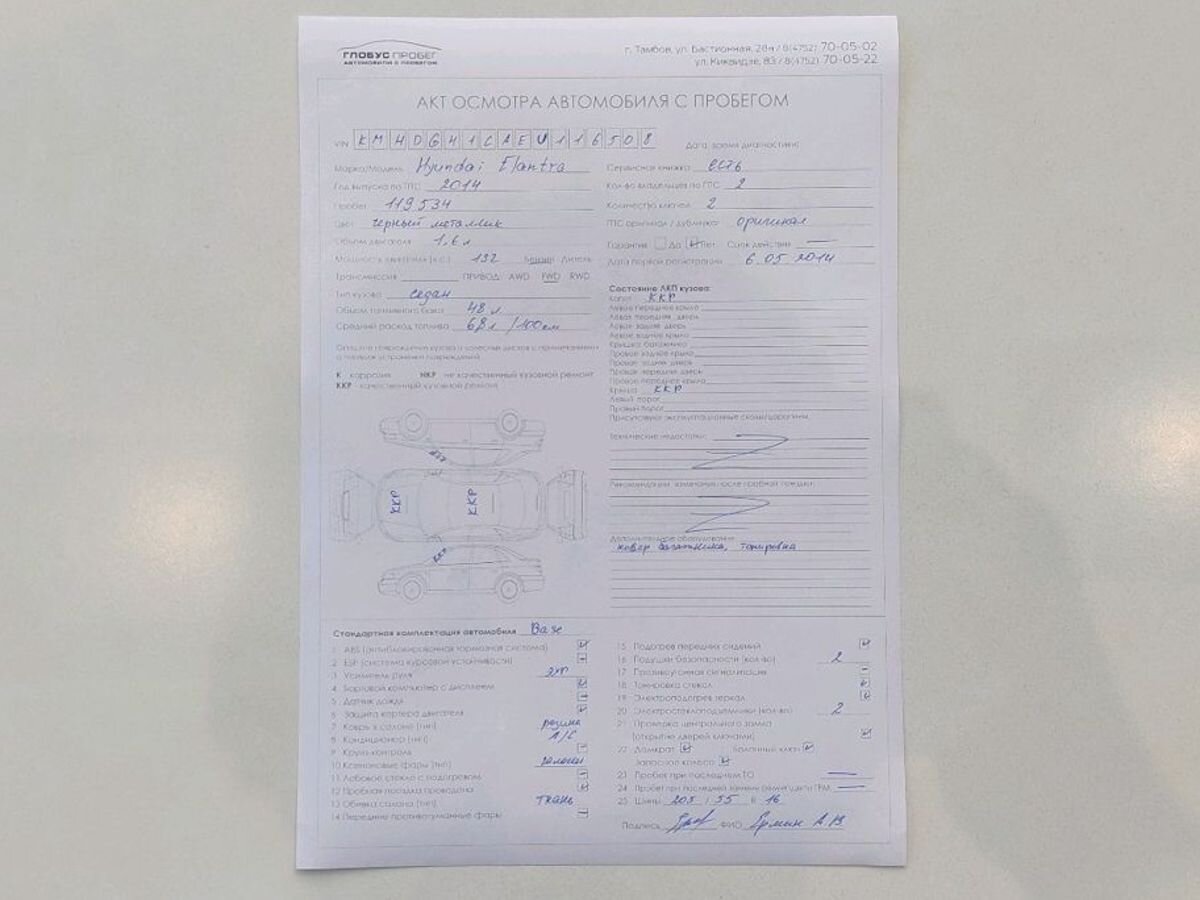 ГЛОБУС ПРОБЕГ
АВТОМОБИЛИ С ПРОБЕГОМ
г. Тамбов, ул. Бастионная, 28н / 8(4752) 70-05-02
ул. Киквидзе, 83 / 8(4752) 70-05-22
АКТ ОСМОТРА АВТОМОБИЛЯ С ПРОБЕГОМ
VIN KMHDG41CAEU116508
Дата, время диагностики:
Марка/Модель Hyundai Elantra
Год выпуска по ПТС 2014
Пробег 119 534
Цвет черный металлик
Объем двигателя 1,6 л
Мощность двигателя (л.с.) 132 Бензин Дизель
Трансмиссия ПРИВОД: AWD FWD RWD
Тип кузова седан
Объем топливного бака 48 л
Средний расход топлива 6,8 л /100 км
Сервисная книжка есть
Кол-во владельцев по ПТС 2
Количество ключей 2
ПТС оригинал / дубликат оригинал
Гарантия Да Нет Срок действия —
Дата первой регистрации 6.05.2014
К - коррозия НКР - не качественный кузовной ремонт
ККР - качественный кузовной ремонт
Состояние ЛКП кузова:
Капот ККР
Левое переднее крыло
Левая передняя дверь
Левая задняя дверь
Левое заднее крыло
Крышка багажника
Правое заднее крыло
Правая задняя дверь
Правая передняя дверь
Правое переднее крыло
Крыша ККР
Левый порог
Правый порог
Присутствуют эксплуатационные сколы/царапины
Технические недостатки:
Рекомендации, замечания после пробной поездки:
Дополнительное оборудование:
ковер багажника, тонировка
ККР
ККР
ККР
ККР
Стандартная комплектация автомобиля Base
1 ABS (антиблокировочная тормозная система)
2 ESP (система курсовой устойчивости) –
3 Усилитель руля ЭУР
4 Бортовой компьютер с дисплеем
5 Датчик дождя –
6 Защита картера двигателя
7 Ковры в салоне (тип) резина
8 Кондиционер (тип) A/C
9 Круиз-контроль –
10 Ксеноновые фары (тип) галоген
11 Лобовое стекло с подогревом –
12 Пробная поездка проведена
13 Обивка салона (тип) ткань
14 Передние противотуманные фары –
15 Подогрев передних сидений
16 Подушки безопасности (кол-во) 2
17 Противоугонная сигнализация –
18 Тонировка стекол
19 Электроподогрев зеркал
20 Электростеклоподъемники (кол-во) 2
21 Проверка центрального замка
(открытие дверей ключами)
22 Домкрат Балонный ключ
Запасное колесо
23 Пробег при последнем ТО —
24 Пробег при последней замене ремня/цепи ГРМ —
25 Шины 205 / 55 R 16
Подпись ФИО Ермин А В